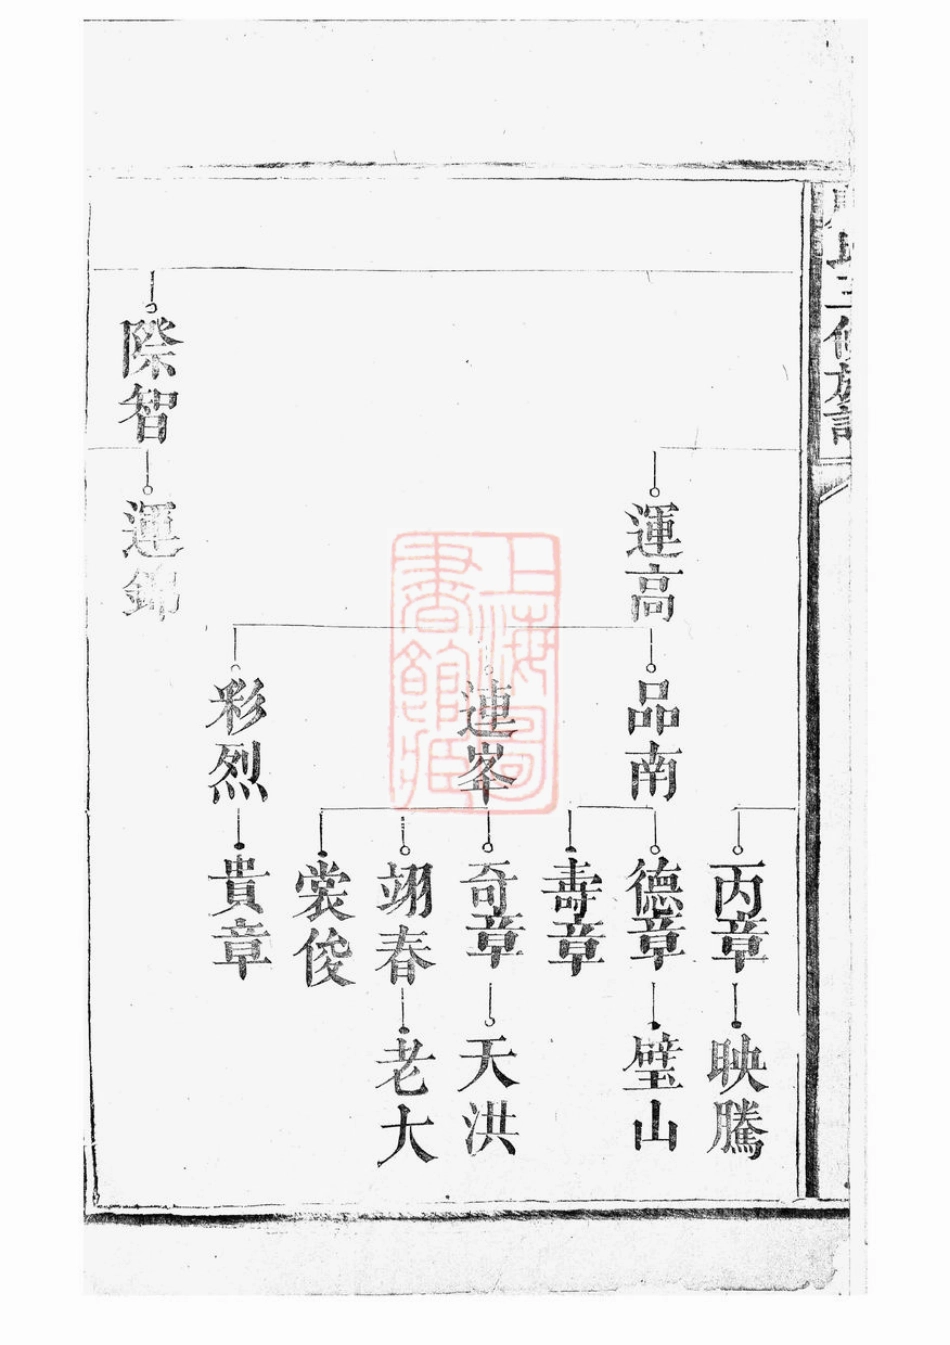 三修族譜
丙章
映騰
運高
品南
德章
璧山
壽章
連峯
奇章
天洪
翊春
老大
裳俊
彩烈
貴章
際智
運錦
上海圖書館藏